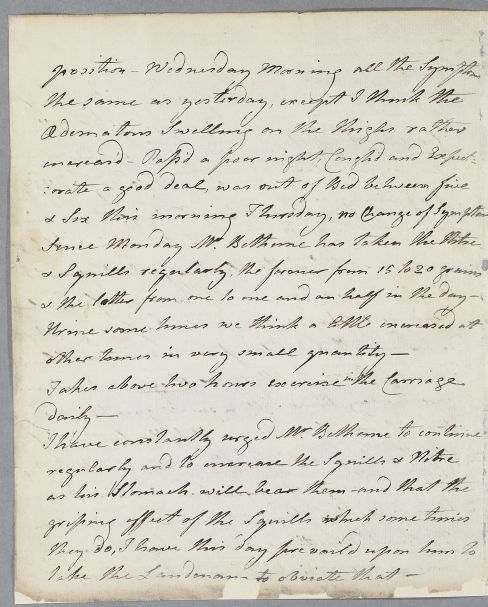 position - Wednesday Morning all the Symptoms
the same as yesterday, except I think the
Œdematous Swelling on the thighs rather
increasd - Pass'd a poor night, Cough'd and Expect-
:orate a good deal, was out of Bed between five
& Six this morning Thursday, no Change of Symptoms
Since Monday Mr. Bethune has taken the Nitre
& Squills regularly, the former from 15 to 20 grains
& the latter from one to one and an half in the day -
Urine some times we think a little increased at
other times in very small quantity -
Takes above two hours exercise in the Carriage
daily -
I have constantly urged Mr. Bethune to continue
regularly and to increase the Squills & Nitre
as his Stomach will bear them - and that the
griping effect of the Squills which some times
they do, I have this day prevaild upon him to
take the Laudanum to obviate that -